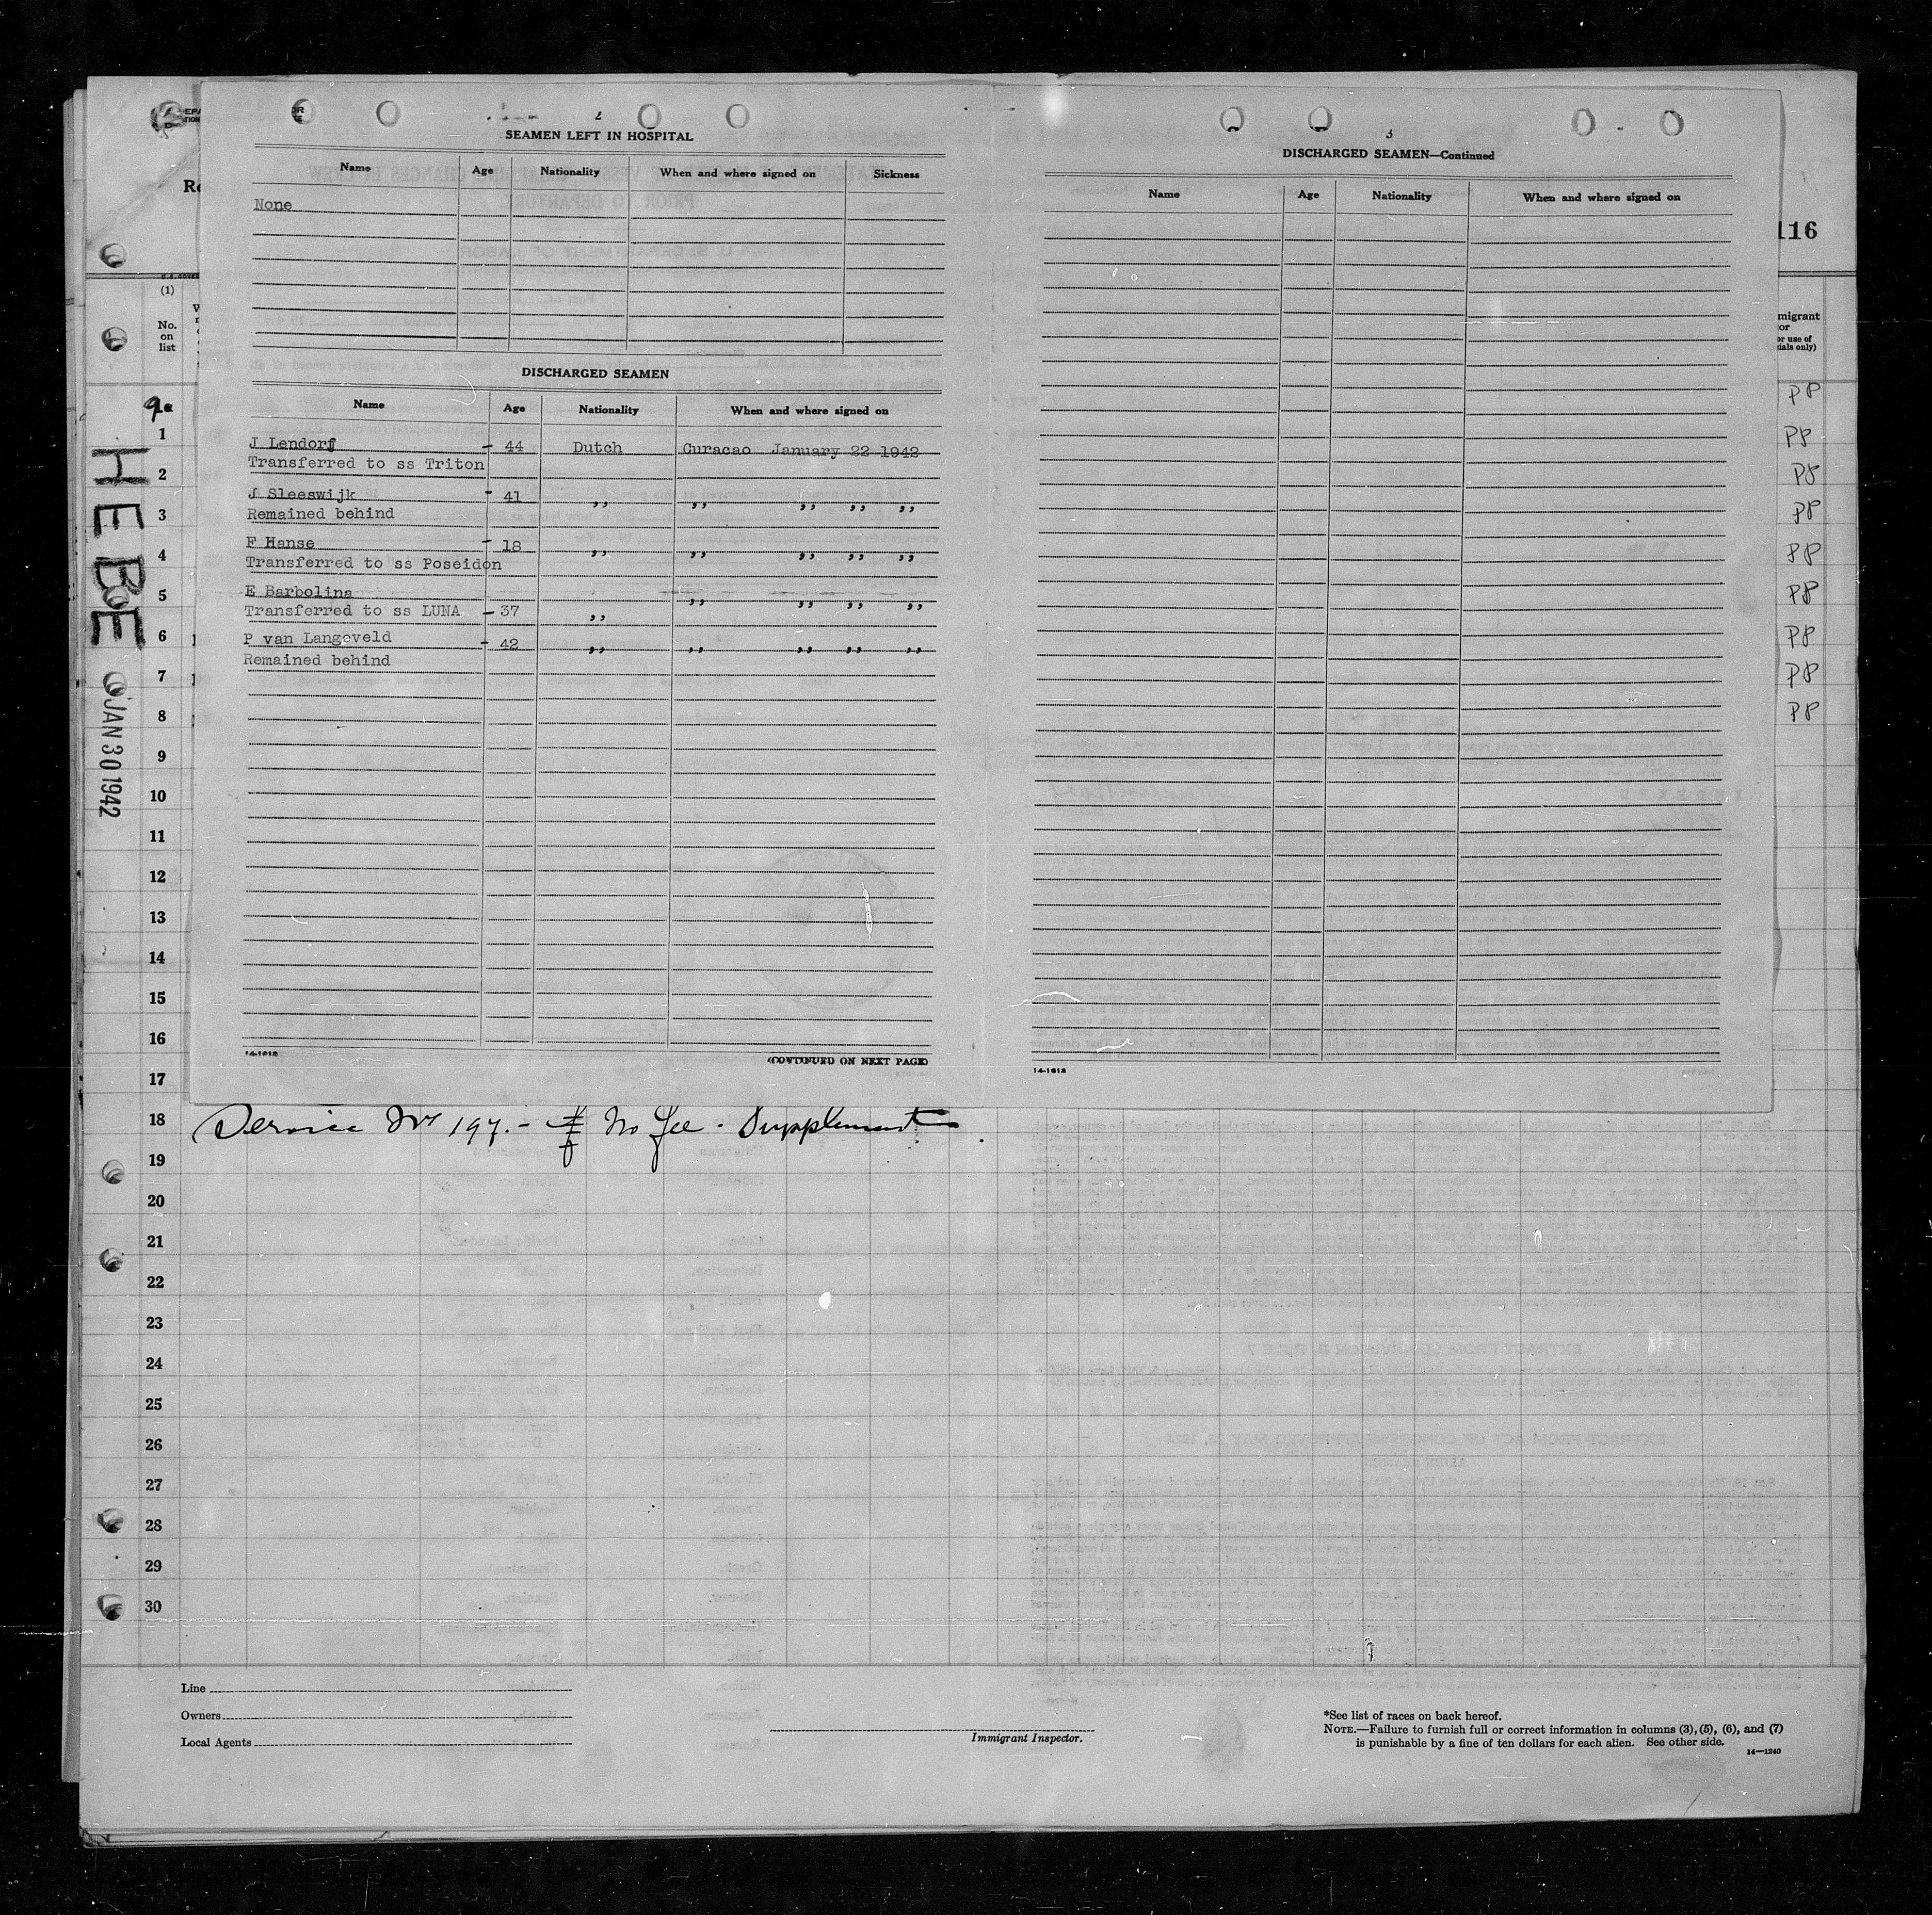 2
SEAMEN LEFT IN HOSPITAL
Name Age Nationality When and where signed on Sickness
None
DISCHARGED SEAMEN
Name Age Nationality When and where signed on
J Lendorf - 44 Dutch Curacao January 22 1942
Transferred to ss Triton
J Sleeswijk - 41 ,, ,, ,, ,, ,,
Remained behind
F Hanse - 18 ,, ,, ,, ,, ,,
Transferred to ss Poseidon
E Barbolina ,, ,, ,, ,,
Transferred to ss LUNA - 37 ,,
P van Langeveld - 42 ,, ,, ,, ,, ,,
Remained behind
14-1618
(CONTINUED ON NEXT PAGE)
3
DISCHARGED SEAMEN—Continued
Name Age Nationality When and where signed on
14-1618
116
(1)
No.
on
list
HEBE
JAN 30 1942
1
2
3
4
5
6
7
8
9
10
11
12
13
14
15
16
17
18
19
20
21
22
23
24
25
26
27
28
29
30
migrant
or
or use of
cials only)
PP
PP
PP
PP
PP
PP
PP
PP
PP
197.- No fee. Supplement
Line
Owners
Local Agents
Immigrant Inspector.
*See list of races on back hereof.
NOTE.—Failure to furnish full or correct information in columns (3), (5), (6), and (7)
is punishable by a fine of ten dollars for each alien. See other side.
14—1240